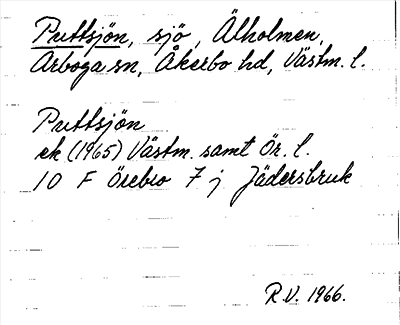 Puttsjön, sjö, Älholmen,
Arboga sn, Åkerbo hd, Västm. l.
Puttsjön
ek (1965) Västm. samt Ör. l.
10 F Örebro 7 j Jädersbruk
R.V. 1966.